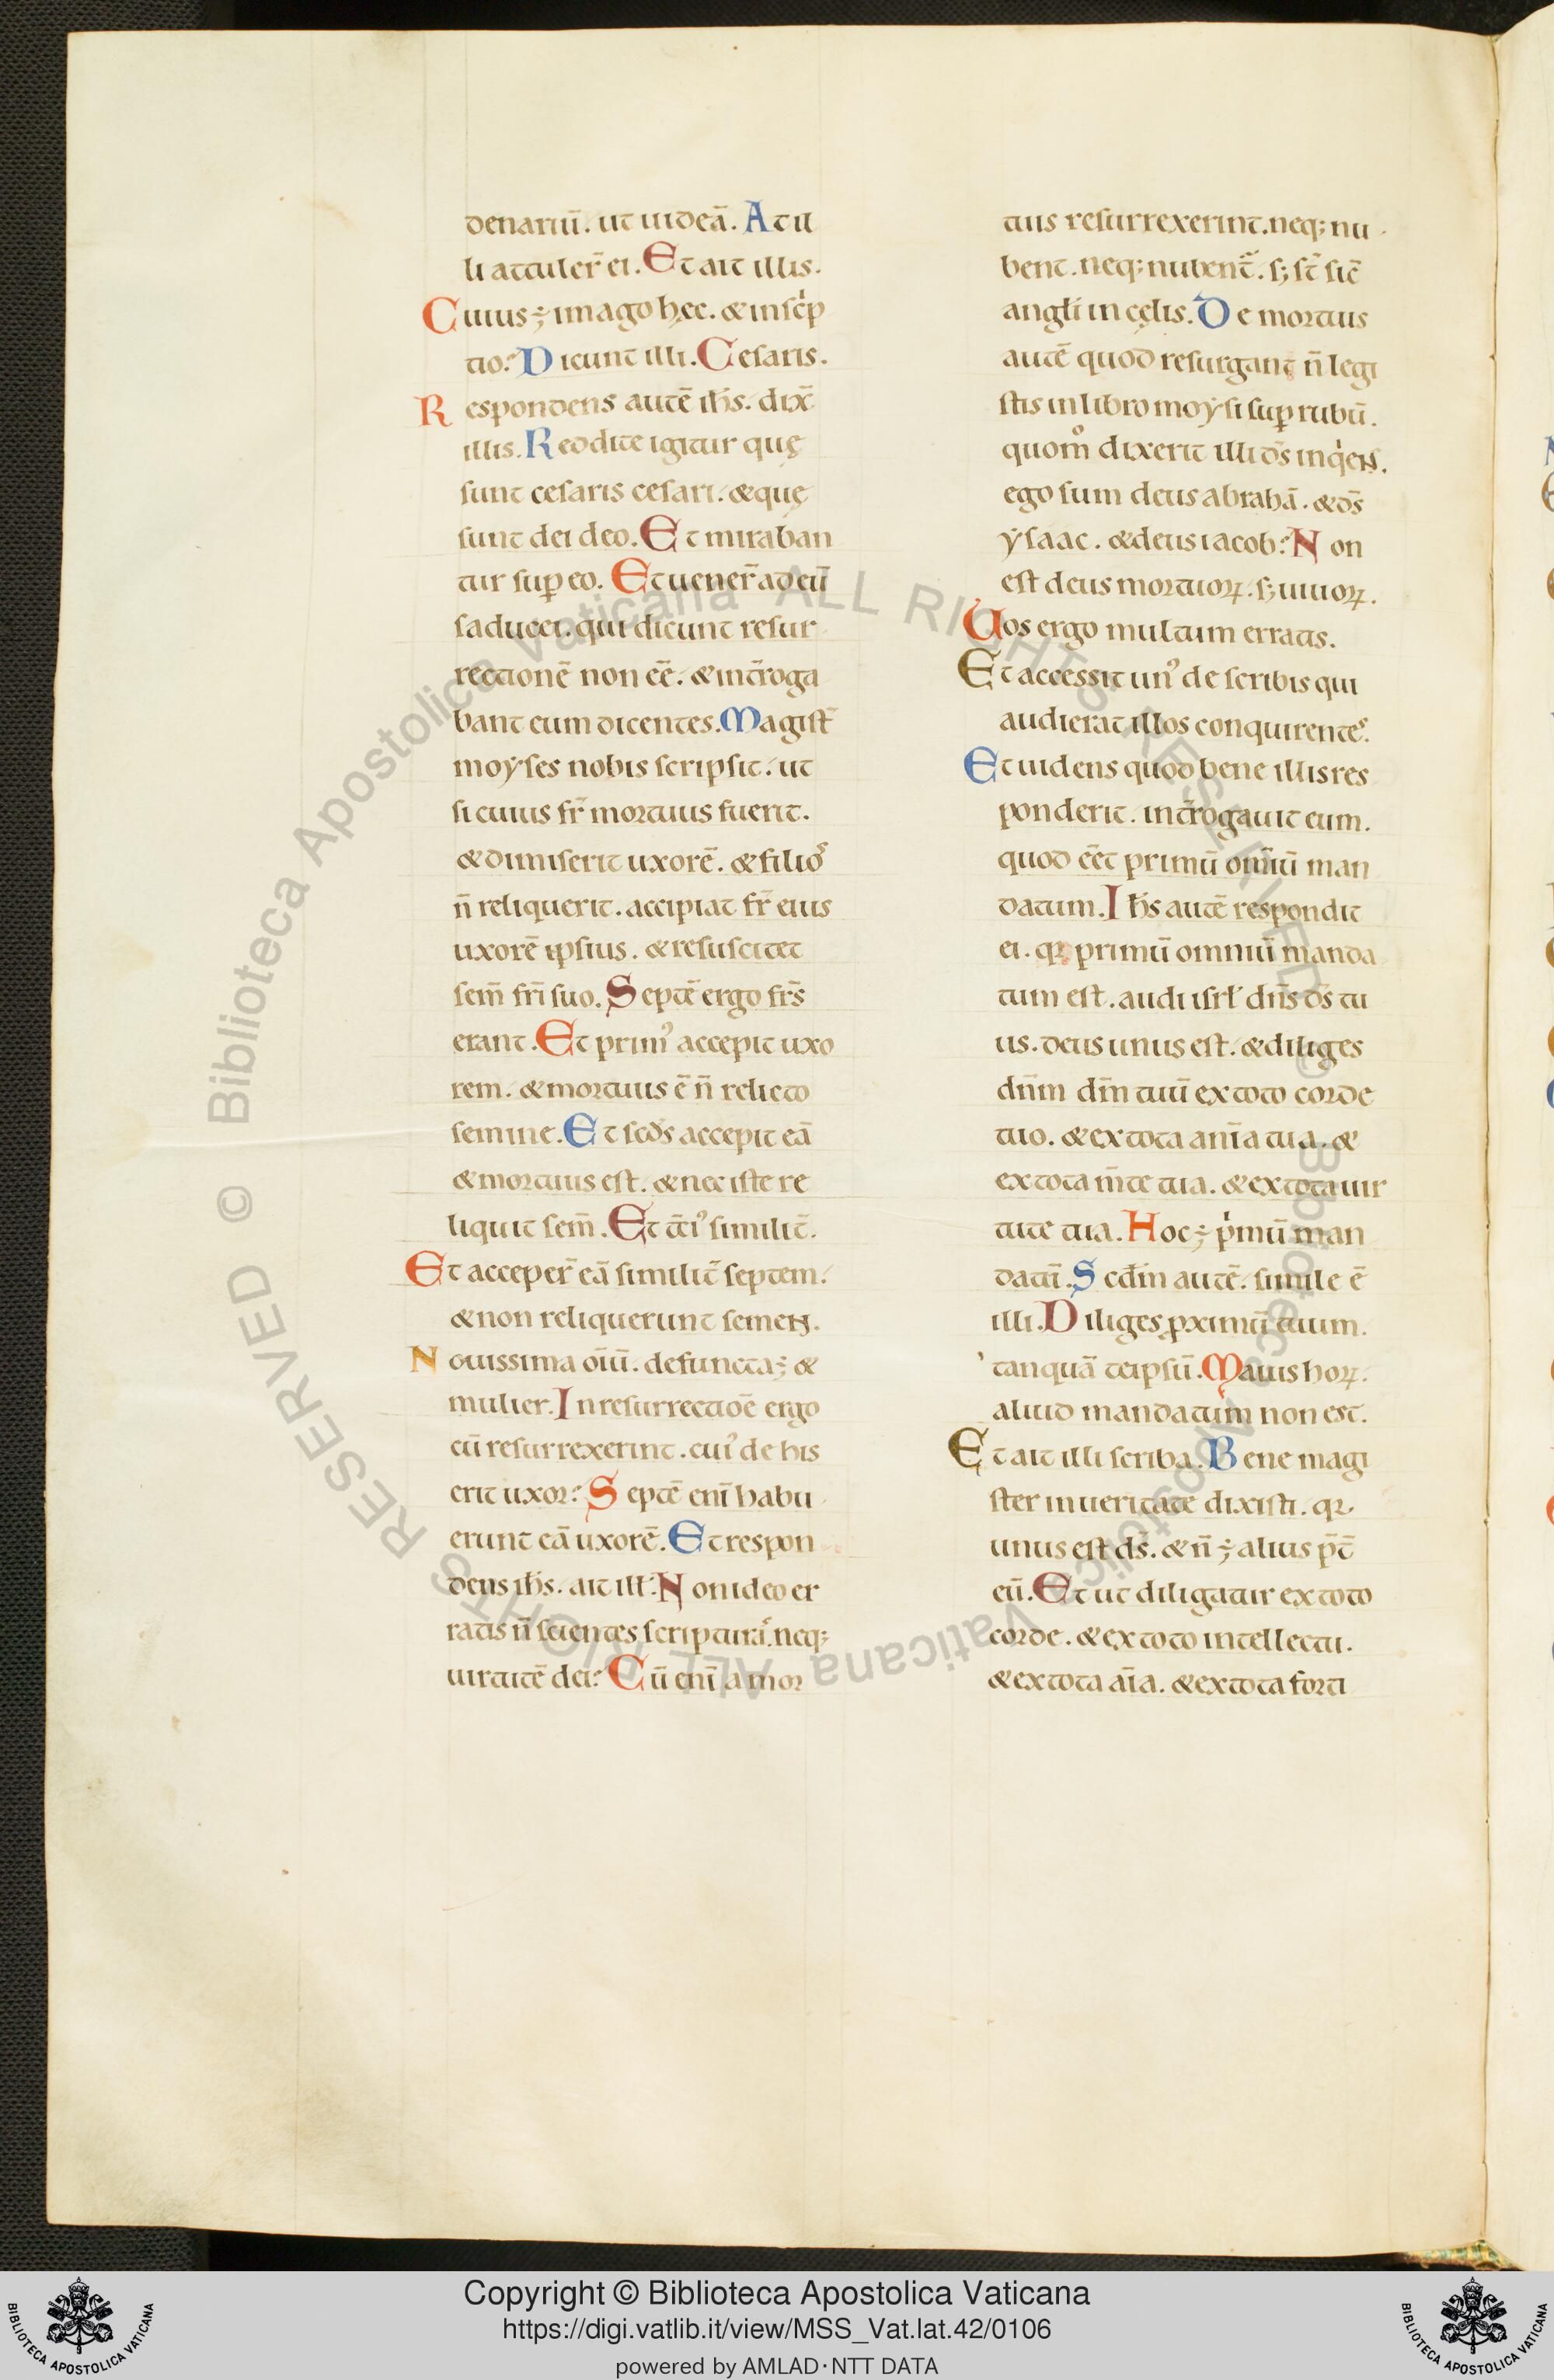 denariū. ut uideā. At il
li attuler̄ ei. Et ait illis.
Cuius ÷ imago hęc. & inscͥp
tio? Dicunt illi. Cesaris.
Respondens autē ih̄s. dix̄
illis. Reddite igitur quę
sunt cesaris cesari. & quę
sunt dei deo. Et miraban
tur suꝑ eo. Et uener̄ ad eū
saducei. qui dicunt resur
rectionē non eē. & int̄roga
bant eum dicentes. Magist̄
moyses nobis scripsit. ut
si cuius fr̄ mortuus fuerit.
& dimiserit uxorē. & filios
n̄ reliquerit. accipiat fr̄ eius
uxorē ipsius. & resuscitet
sem̄ fr̄i suo. Septē ergo fr̄s
erant. Et primꝰ accepit uxo
rem. & mortuus ē n̄ relicto
semine. Et sc̄ds accepit eā
& mortuus est. & nec iste re
liquit sem̄. Et t̄ciꝰ similit̄.
Et acceper̄ eā similit̄ septem.
& non reliquerunt semen.
Nouissima oīū. defuncta ÷ &
mulier. In resurrectiōe ergo
cū resurrexerint. cuiꝰ de his
erit uxor? Septē enī habu
erunt eā uxorē. Et respon
dens ih̄s. ait ill̄. Non ideo er
ratis n̄ scientes scripturas. neq;
uirtutē dei? Cū enī a mor
tuis resurrexerint. neq; nu
bent. neq; nubent̄. s; st̄ sic̄
angl̄i in cęlis. De mortuis
autē quod resurgant n̄ legi
stis in libro moysi suꝑ rubū.
quom̊ dixerit illi d̄s inqͥens.
ego sum deus abrahā. & d̄s
ysaac. & deus iacob? Non
est deus mortuoꝝ. s; uiuoꝝ.
Uos ergo multum erratis.
Et accessit unꝰ de scribis qui
audierat illos conquirentes.
Et uidens quod bene illis res
ponderit. int̄rogauit eum.
quod eēt primū omīū man
datum. Ih̄s autē respondit
ei. qꝛ primū omniū manda
tum est. audi isrł dn̄s d̄s tu
us. deus unus est. & diliges
dn̄m dm̄ tuū ex toto corde
tuo. & ex tota anīa tua. &
ex tota m̄te tua. & ex tota uir
tute tua. Hoc ÷ pͥmū man
datū. Scd̄m autē. simile ē
illi. Diliges ꝓximū tuum.
tanquā teipsū. Maius hoꝝ.
aliud mandatum non est.
Et ait illi scriba. Bene magi
ster in ueritate dixisti. qꝛ
unus est d̄s. & n̄ ÷ alius p̄t̄
eū. Et ut diligatur ex toto
corde. & ex toto intellectu.
& ex tota aīa. & ex tota forti
© Biblioteca Apostolica Vaticana ALL RIGHTS RESERVED © Biblioteca Apostolica Vaticana ALL RIGHTS RESERVED
Copyright © Biblioteca Apostolica Vaticana
https://digi.vatlib.it/view/MSS_Vat.lat.42/0106
powered by AMLAD·NTT DATA
BIBLIOTECA APOSTOLICA VATICANA
BIBLIOTECA APOSTOLICA VATICANA